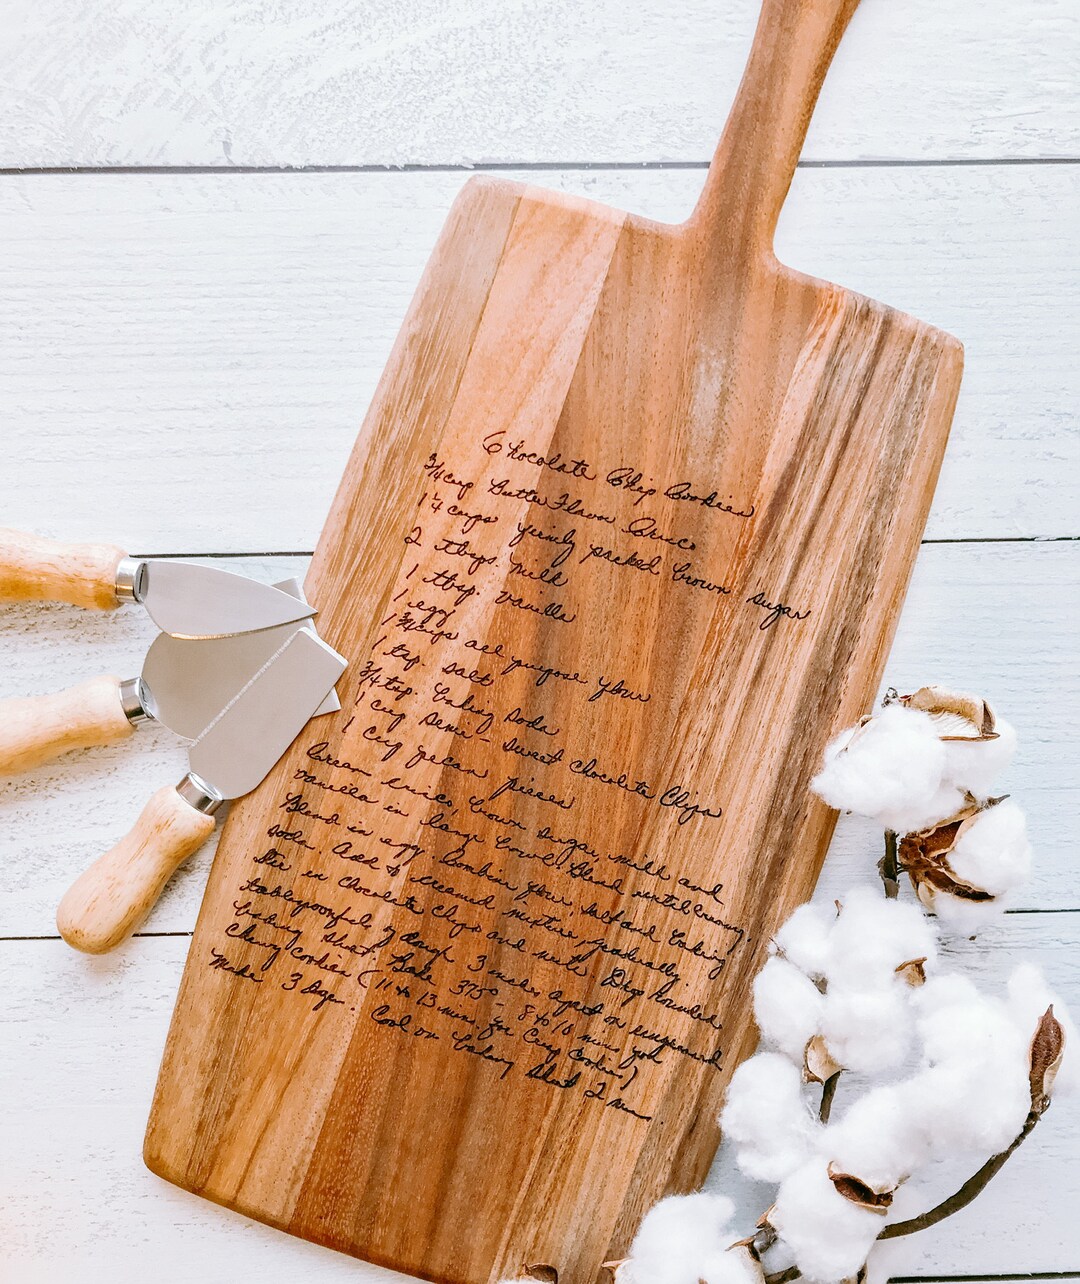 Chocolate Chip Cookies
3/4 cup Butter Flavor Crisco
1 1/4 cups firmly packed brown sugar
2 tbsps milk
1 tbsp. vanilla
1 egg
1 3/4 cups all purpose flour
1 tsp. salt
3/4 tsp. baking soda
1 cup semi-sweet chocolate Chips
1 cup pecan pieces
Cream crisco, brown sugar, milk and
vanilla in large bowl. Blend until creamy.
Blend in egg. Combine flour, salt and baking
soda. Add to creamed mixture, gradually.
Stir in chocolate chips and nuts. Drop rounded
tablespoonfuls of dough 3 inches apart on ungreased
baking sheet. Bake 375° - 8 to 10 mins for
Chewy cookies (11 to 13 mins. for Crisp Cookies)
Makes 3 doz. Cool on baking sheet 2 min.